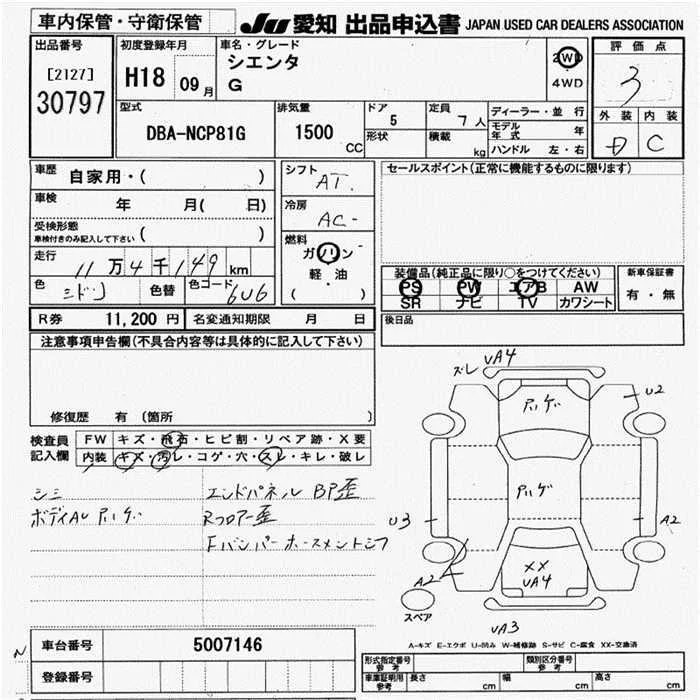 車内保管・守衛保管
JU 愛知 出品申込書 JAPAN USED CAR DEALERS ASSOCIATION
出品番号
[2127]
30797
初度登録年月
H18 09月
車名・グレード
シエンタ
G
2WD
4WD
評価点
3
外装 内装
D C
型式
DBA-NCP81G
排気量
1500 CC
ドア
5
定員
7人
形状
積載
kg
ディーラー・並行
モデル年式 年
ハンドル 左・右
車歴
自家用・( )
車検
年 月( 日)
受検形態
車検付きのみ記入して下さい ( )
走行
11万4千149km
色
ミドリ
色替
色コード
6U6
シフト
AT
冷房
AC
燃料
ガソリン
軽・油
( )
セールスポイント(正常に機能するものに限ります)
装備品(純正品に限り○をつけてください)
PS PW エアB AW
SR ナビ TV カワシート
新車保証書
有・無
R券 11,200円 名変通知期限 月 日
後日品
注意事項申告欄(不具合内容等は具体的に記入して下さい)
修復歴 有 (箇所 )
検査員記入欄
FW キズ・飛石・ヒビ割・リペア跡・X要
内装 キズ・汚レ・コゲ・穴・スレ・キレ・破レ
シミ
ボディAU アリゲ
エンドパネル BP歪
Rフロアー歪
Fバンパーホースメント
ズレ UA4
U2
アリゲ
アリゲ
U3
A2
A2
XX
UA4
スペア
UA3
A-キズ E-エクボ U-凹み W-補修跡 S-サビ C-腐食 XX-交換済
車台番号 5007146
登録番号
形式指定番号 参考
類別区分番号 参考
車庫証明用 参考
長さ cm
幅 cm
高さ cm
N